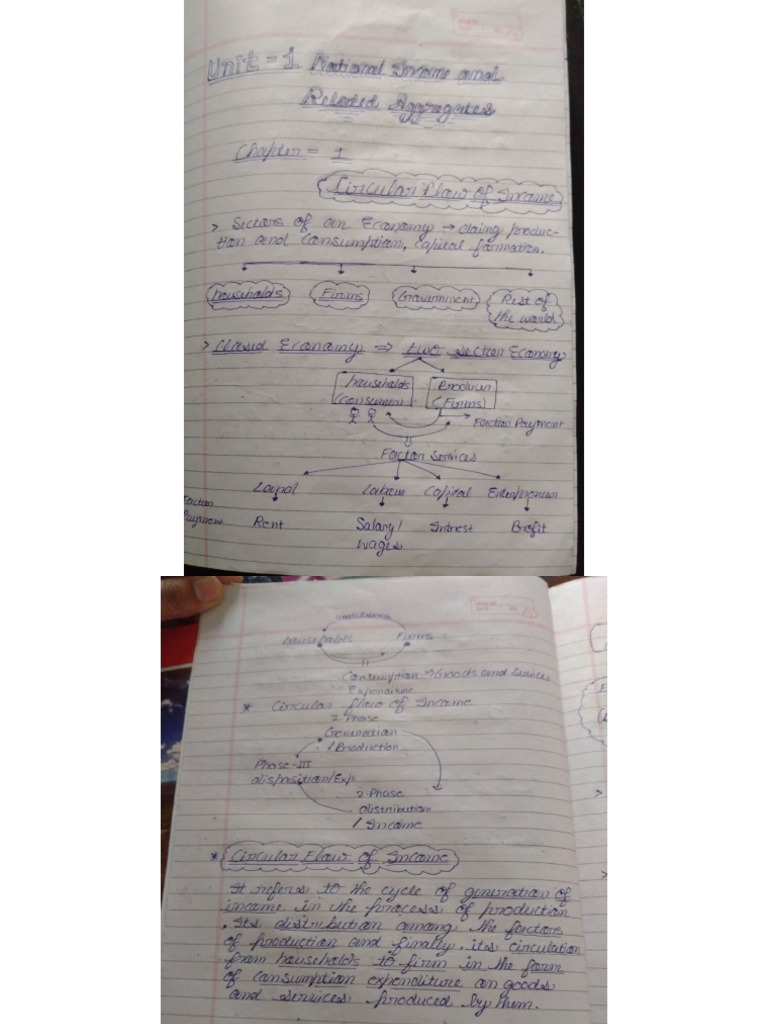 Unit-1 National Income and
Related Aggregates
Chapter = 1
Circular Flow of Income
> Sectors of an Economy → doing produc-
tion and consumption, capital formation.
Households Firms Government Rest of
the world
> Closed Economy ⇒ two sector Economy
Households Producer
(consumer) (Firms)
Factor Payment
Factor Services
Land Labour Capital Entrepreneur
Factor
Payment Rent Salary/ Intrest Profit
wages
Households Firms
Consumption → Goods and Services
Expenditure
* Circular flow of Income
Phase
Generation
/ Production
Phase-III
disposition/Exp.
2-Phase
distribution
/ Income
* Circular Flow of Income
It refers to the cycle of generation of
income in the process of production
. Its distribution among the factors
of production and finally. its circulation
from households to firm in the form
of consumption expenditure on goods
and services produced by them.